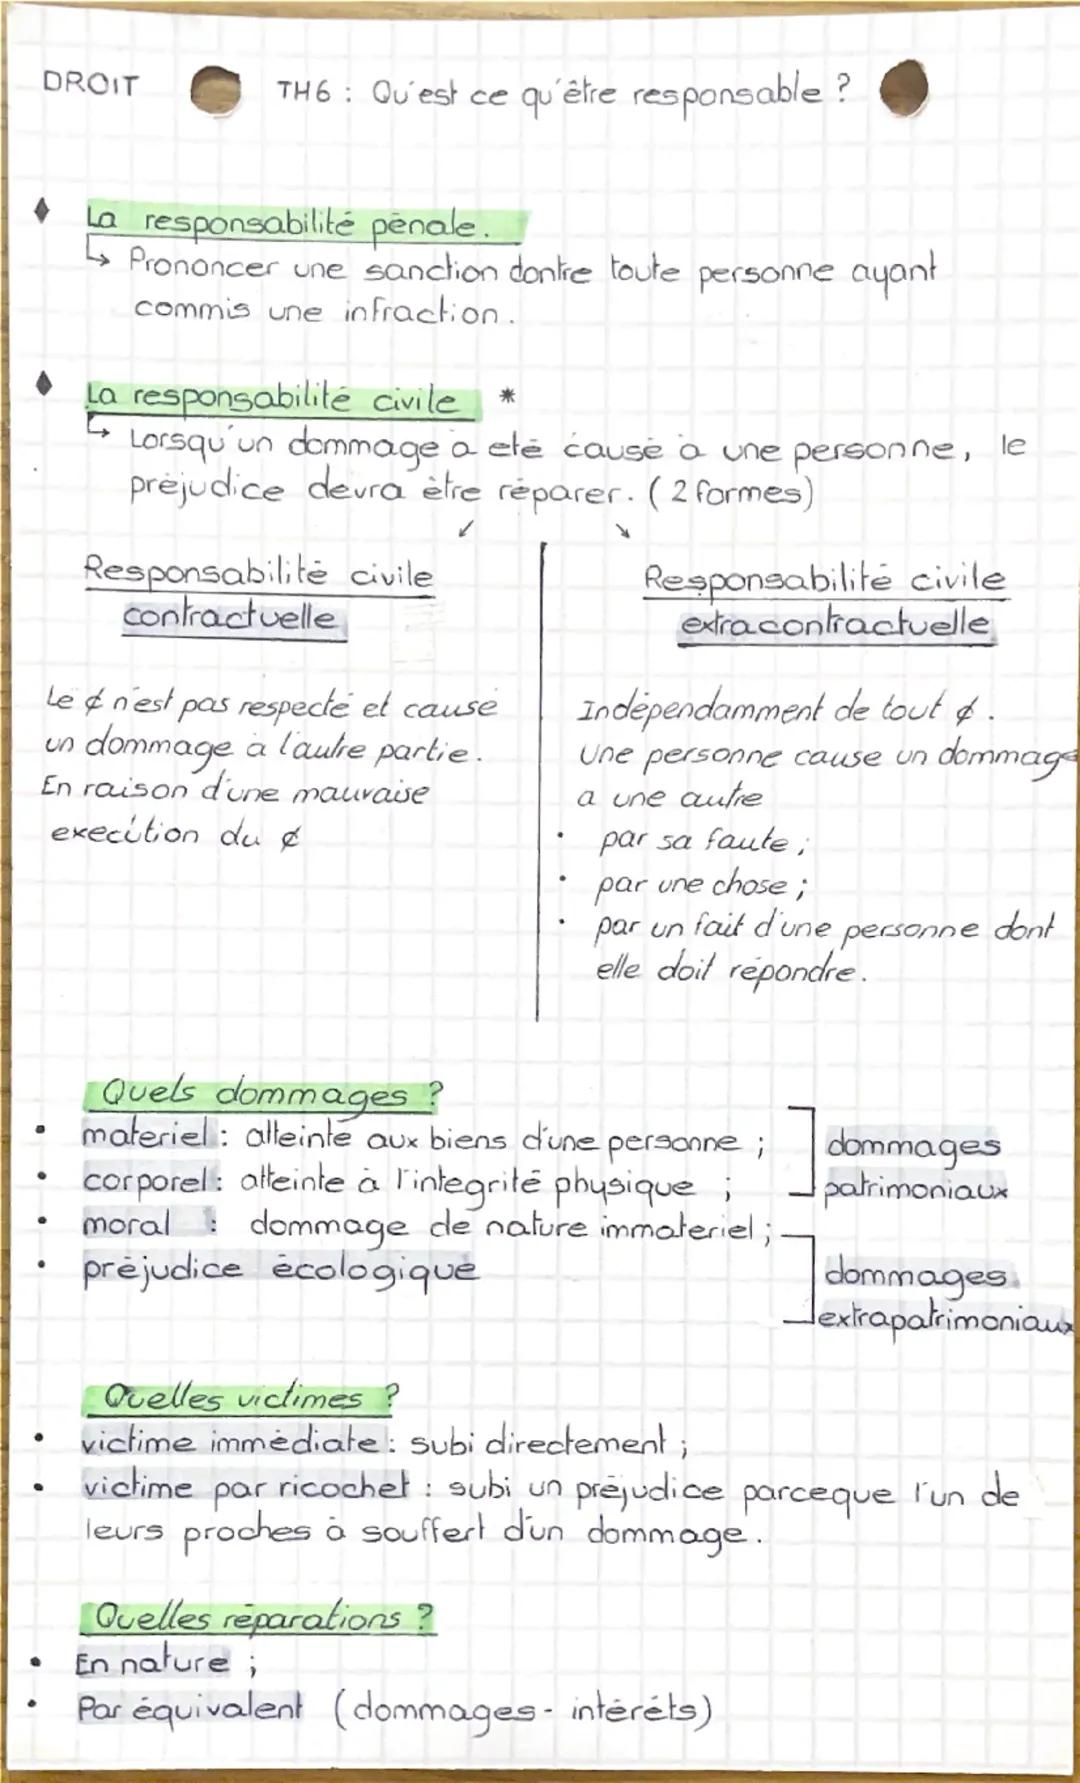 DROIT
TH6 : Qu'est ce qu'être responsable ?
La responsabilité pénale.
↳ Prononcer une sanction dontre toute personne ayant
commis une infraction.
La responsabilité civile *
↳ Lorsqu'un dommage a eté causé à une personne, le
préjudice devra être réparer. (2 formes)
Responsabilité civile
contractuelle
Le ¢ n'est pas respecté et cause
un dommage à l'autre partie.
En raison d'une mauvaise
execution du ¢
Responsabilité civile
extracontractuelle
Indépendamment de tout ¢.
Une personne cause un dommage
a une autre
• par sa faute ;
• par une chose ;
• par un fait d'une personne dont
elle doit répondre.
Quels dommages ?
• materiel : atteinte aux biens d'une personne ;
• corporel : atteinte à l'integrité physique ;
dommages
patrimoniaux
• moral : dommage de nature immateriel ;
• préjudice écologique
dommages
extrapatrimoniaux
Quelles victimes ?
• victime immédiate : subi directement ;
• victime par ricochet : subi un préjudice parceque l'un de
leurs proches à souffert d'un dommage.
Quelles réparations ?
• En nature ;
• Par équivalent (dommages - intérêts)